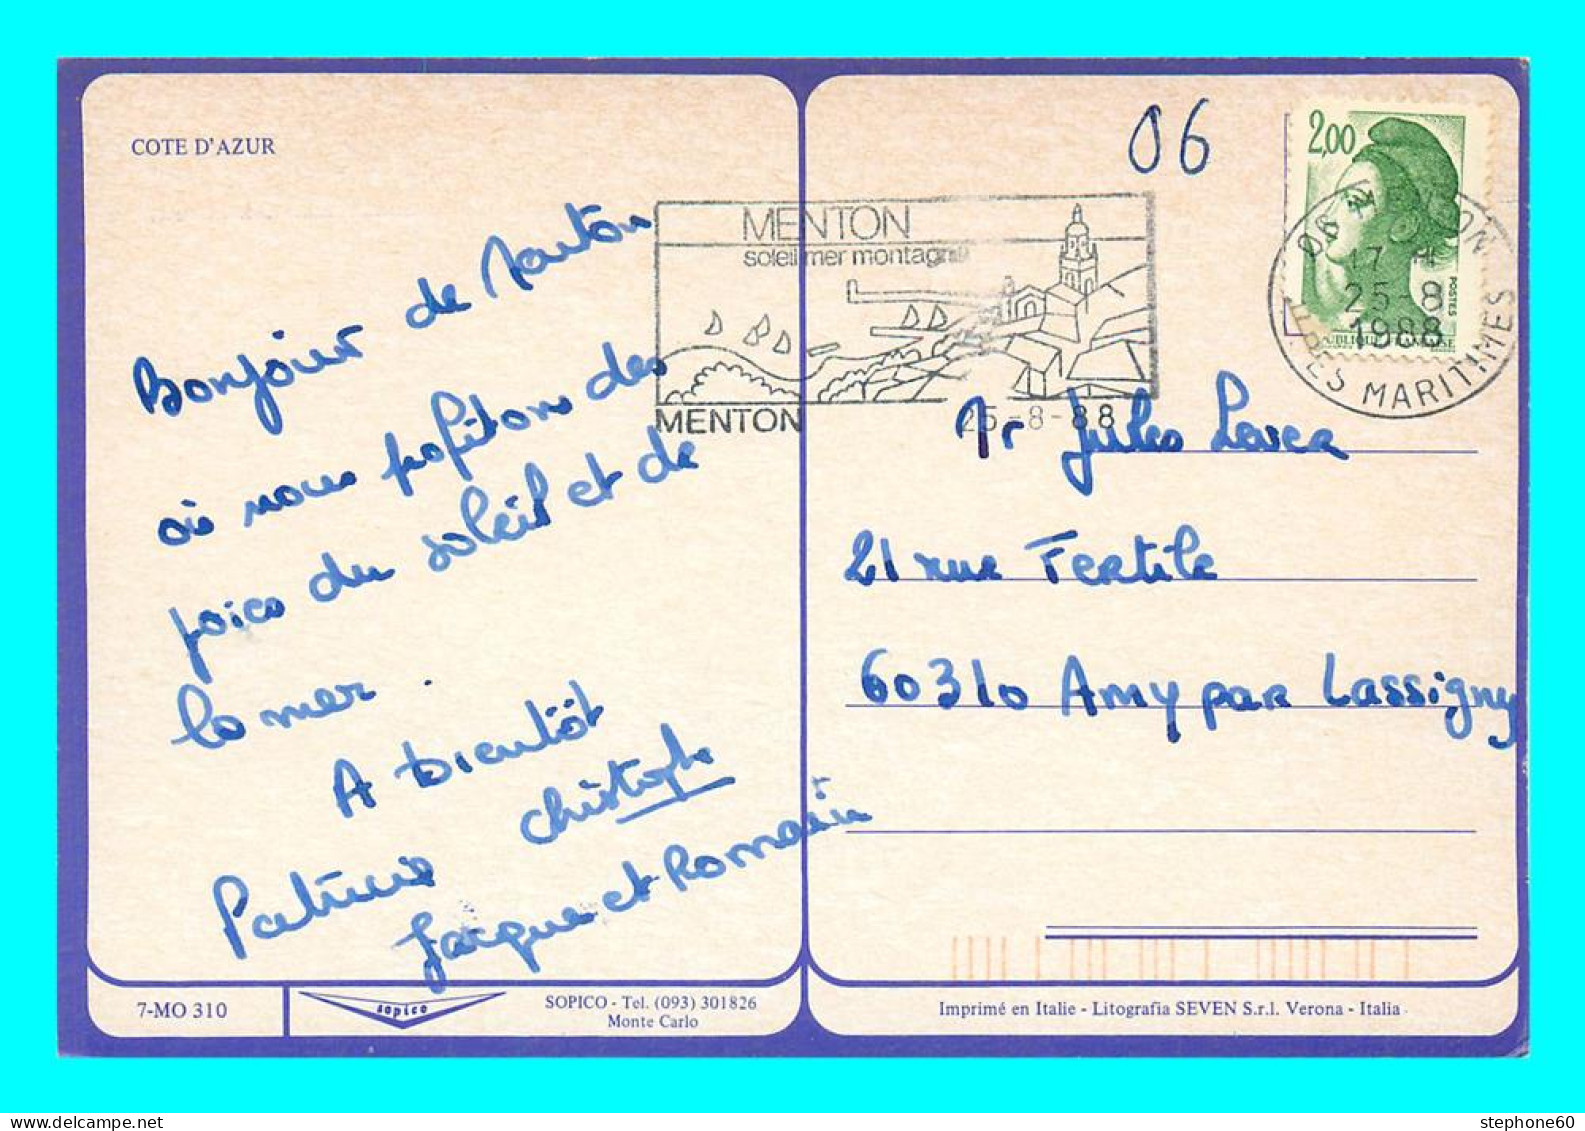 COTE D'AZUR
06
2,00
POSTES
MENTON
soleil mer montagne
17 H
25-8
1988
MARITIMES
MENTON
25-8-88
Bonjour de Menton
où nous profitons des
joies du soleil et de
la mer.
A bientôt
Christophe
Patricia
Jacques et Romain
Mr Jules
21 rue Fertile
60310 Amy par Lassigny
7-MO 310
sopico
SOPICO - Tel. (093) 301826
Monte Carlo
Imprimé en Italie - Litografia SEVEN S.r.l. Verona - Italia
stephone60